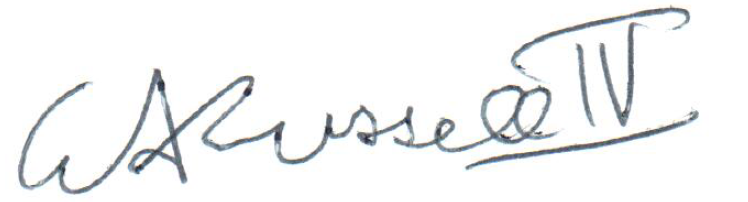 WA Russell IV